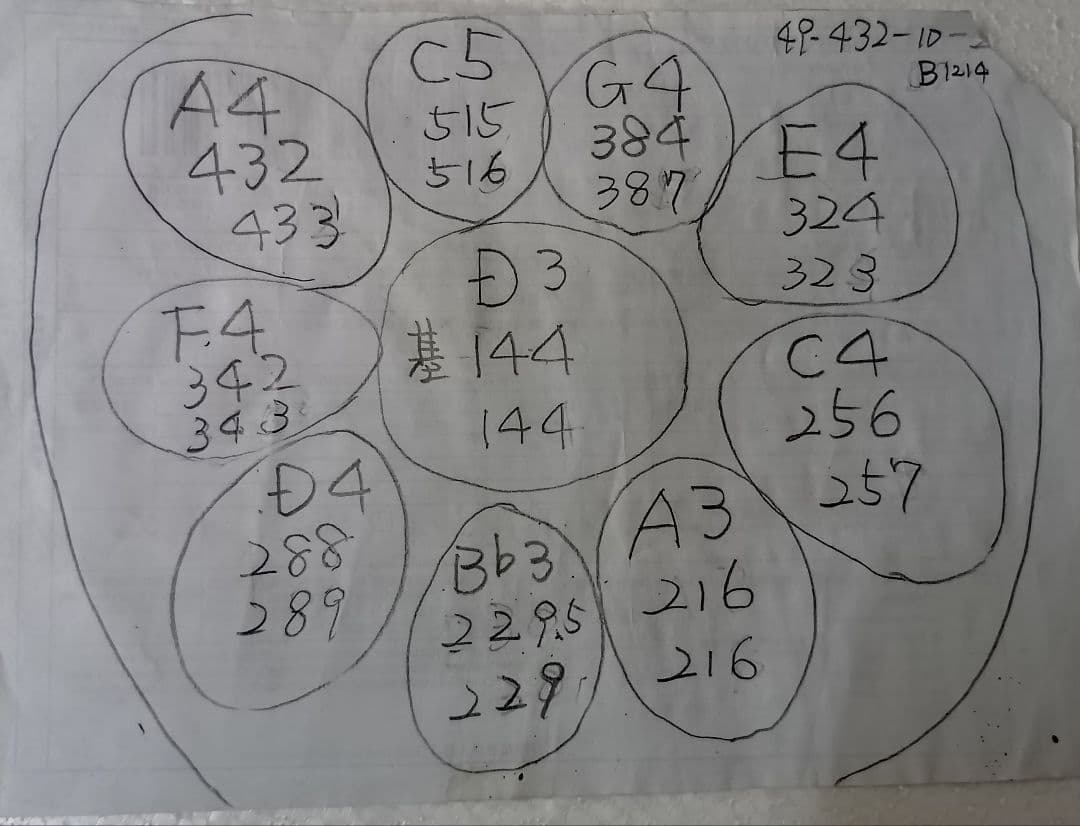 49-432-10-2
B1214
A4
432
433
C5
515
516
G4
384
387
E4
324
323
F.4
342
343
Đ3
基 144
144
C4
256
257
Đ4
288
289
Bb3
229.5
229
A3
216
216